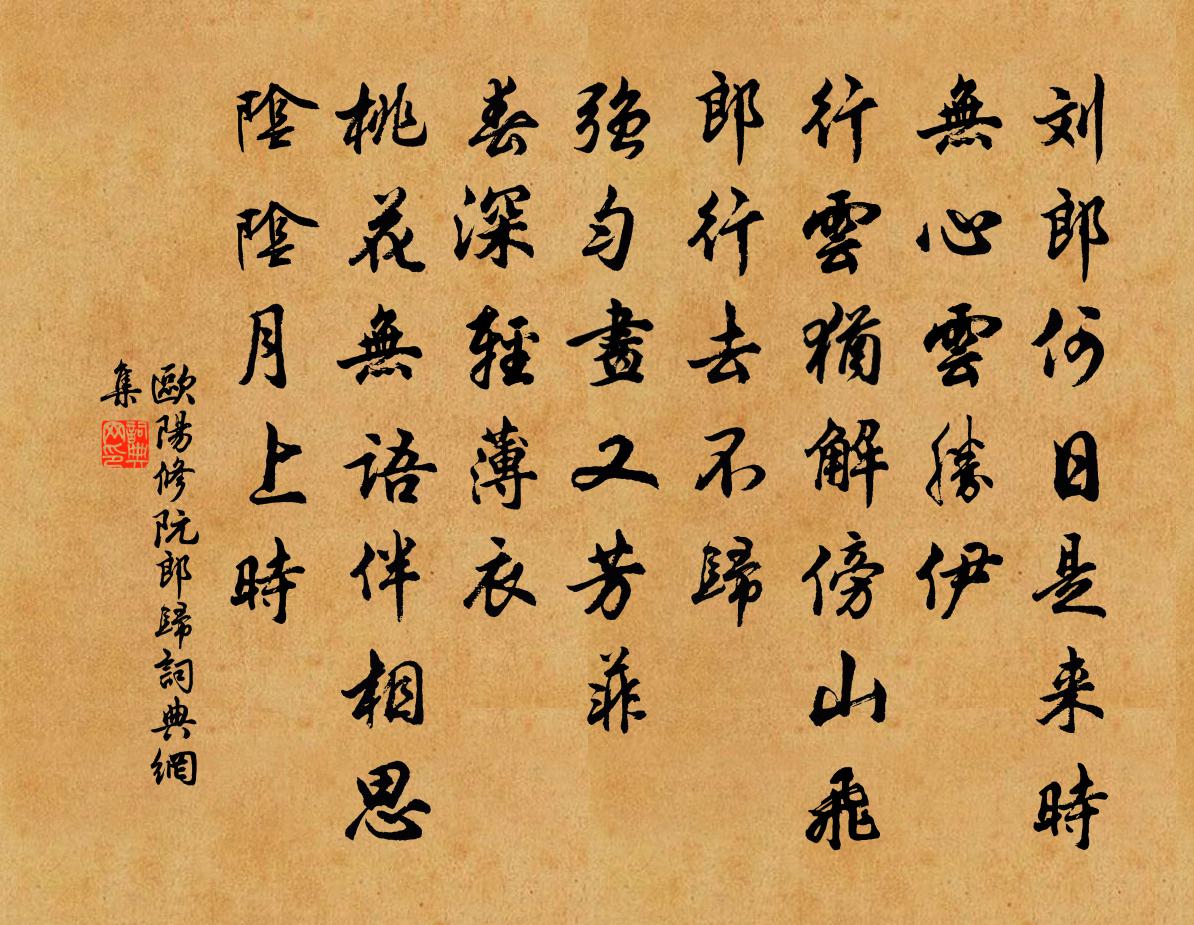 刘郎何日是来時
無心雲勝伊
行雲猶解傍山飛
郎行去不歸
強勻畫又芳菲
春深輕薄衣
桃花無語伴相思
陰陰月上時
歐陽修阮郎歸詞典網
集
詞典
网印